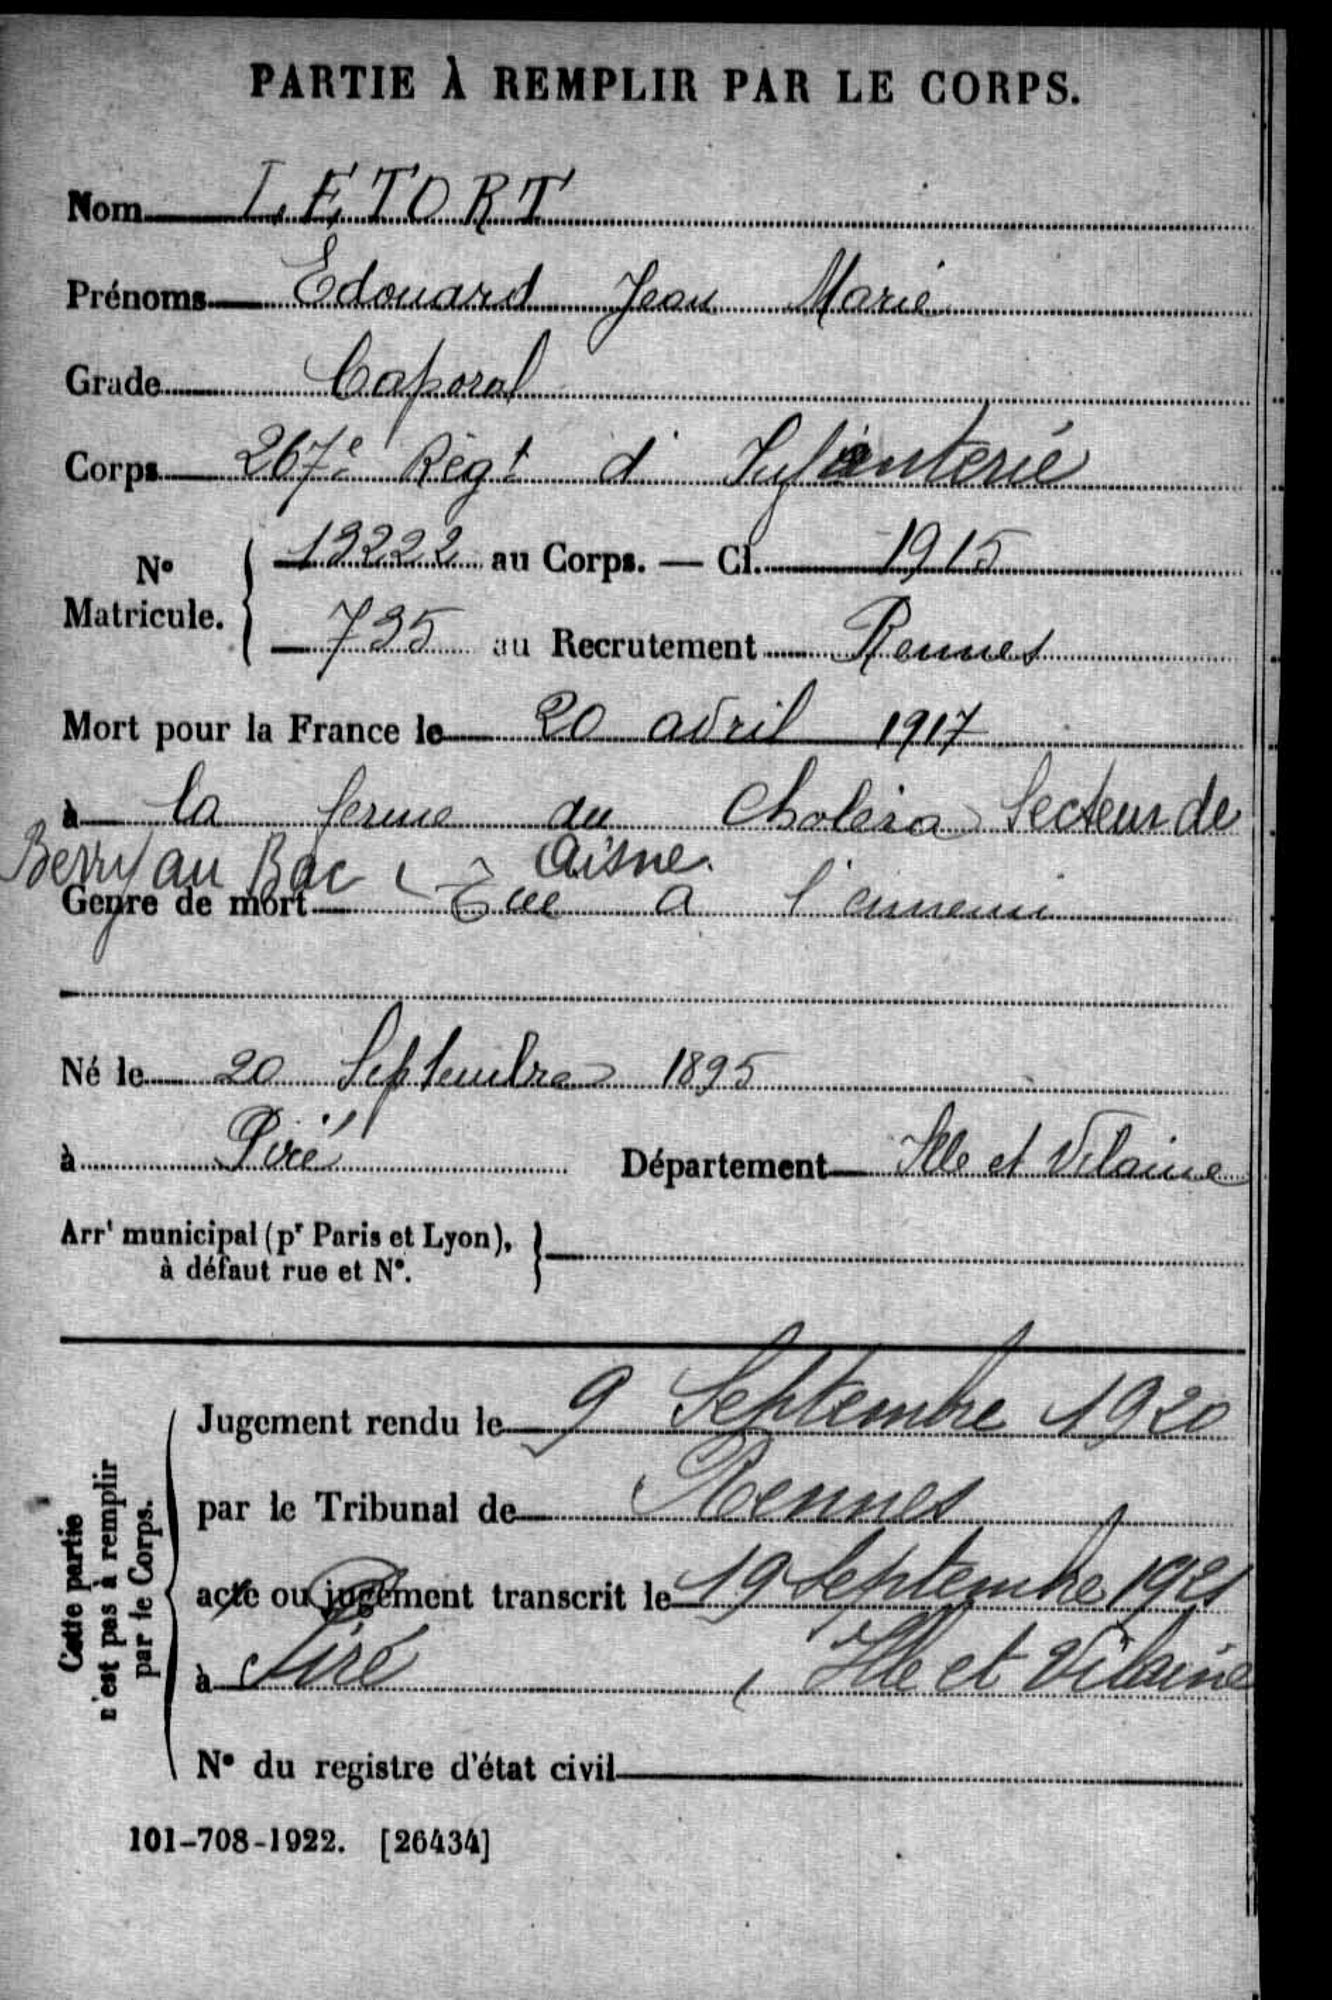 PARTIE À REMPLIR PAR LE CORPS.
Nom LETORT
Prénoms Edouard Jean Marie
Grade Caporal
Corps 267e Régt d'Infanterie
No Matricule. 13222 au Corps. — Cl. 1915
735 au Recrutement Rennes
Mort pour la France le 20 avril 1917
à la ferme du Choléra Secteur de
Berry au Bac, Aisne.
Genre de mort Tué à l'ennemi
Né le 20 Septembre 1895
à Piré Département Ille et Vilaine
Arrt municipal (pr Paris et Lyon),
à défaut rue et No.
Cette partie
n'est pas à remplir
par le Corps.
Jugement rendu le 9 Septembre 1920
par le Tribunal de Rennes
acte ou jugement transcrit le 19 Septembre 1921
à Piré, Ille et Vilaine
No du registre d'état civil
101-708-1922. [26434]